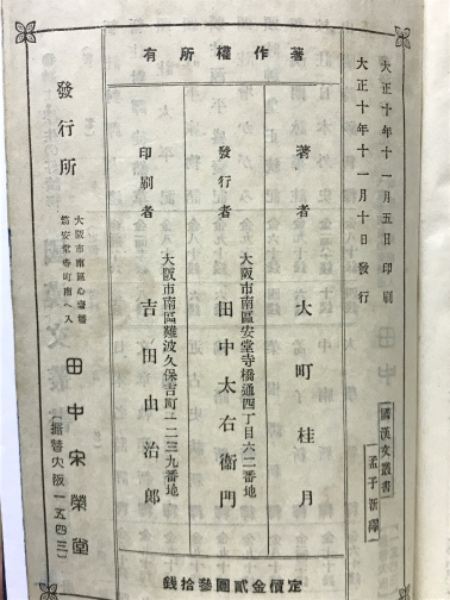 大正十年十一月五日印刷
大正十年十一月十日發行
國漢文叢書
孟子新釋
著作權所有
著者 大町桂月
大阪市南區安堂寺橋通四丁目六二番地
發行者 田中太右衞門
大阪市南區難波久保吉町一二三九番地
印刷者 吉田由治郎
定價金貳圓參拾錢
發行所
大阪市南區心齋橋
筋安堂寺町南ヘ入
田中宋榮堂
(振替大阪一五四三)